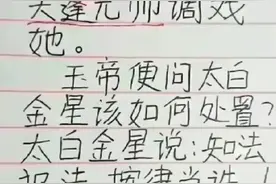 天蓬元帅调戏
她。
王帝便问太白
金星该如何处置?
太白金星说:知法
犯法,按律当诛!